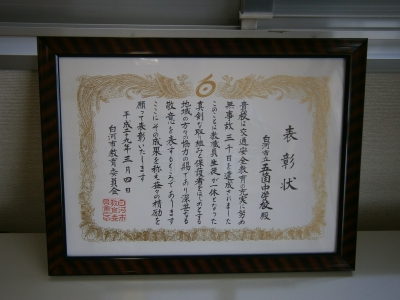 表彰状
白河市立五箇中学校殿
貴校は交通安全教育の充実に努め
無事故三千日を達成されました
このことは教職員生徒が一体となった
真剣な取り組みと保護者をはじめとする
地域の方々の協力の賜であり深甚なる
敬意を表するところであります
ここにその成果を称え益々の精励を
願って表彰いたします
平成二十九年三月四日
白河市教育委員会